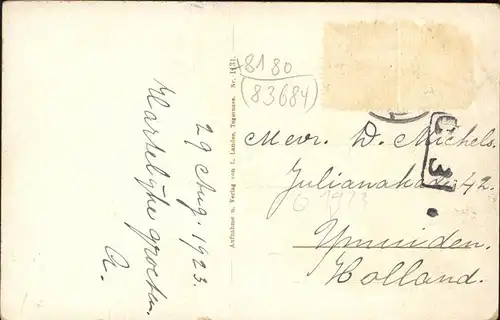 29 Aug. 1923.
Hartelijke groeten.
A.
Aufnahme u. Verlag von L. Landes, Tegernsee. Nr. 1431.
8180
(83684)
Mevr. W. Michels.
Julianakade 42.
Ymuiden.
Holland.
1923